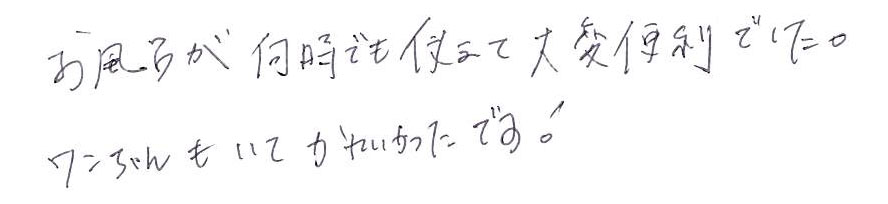 お風呂が何時でも使えて大変便利でした。
ワンちゃんもいてかわいかったです!